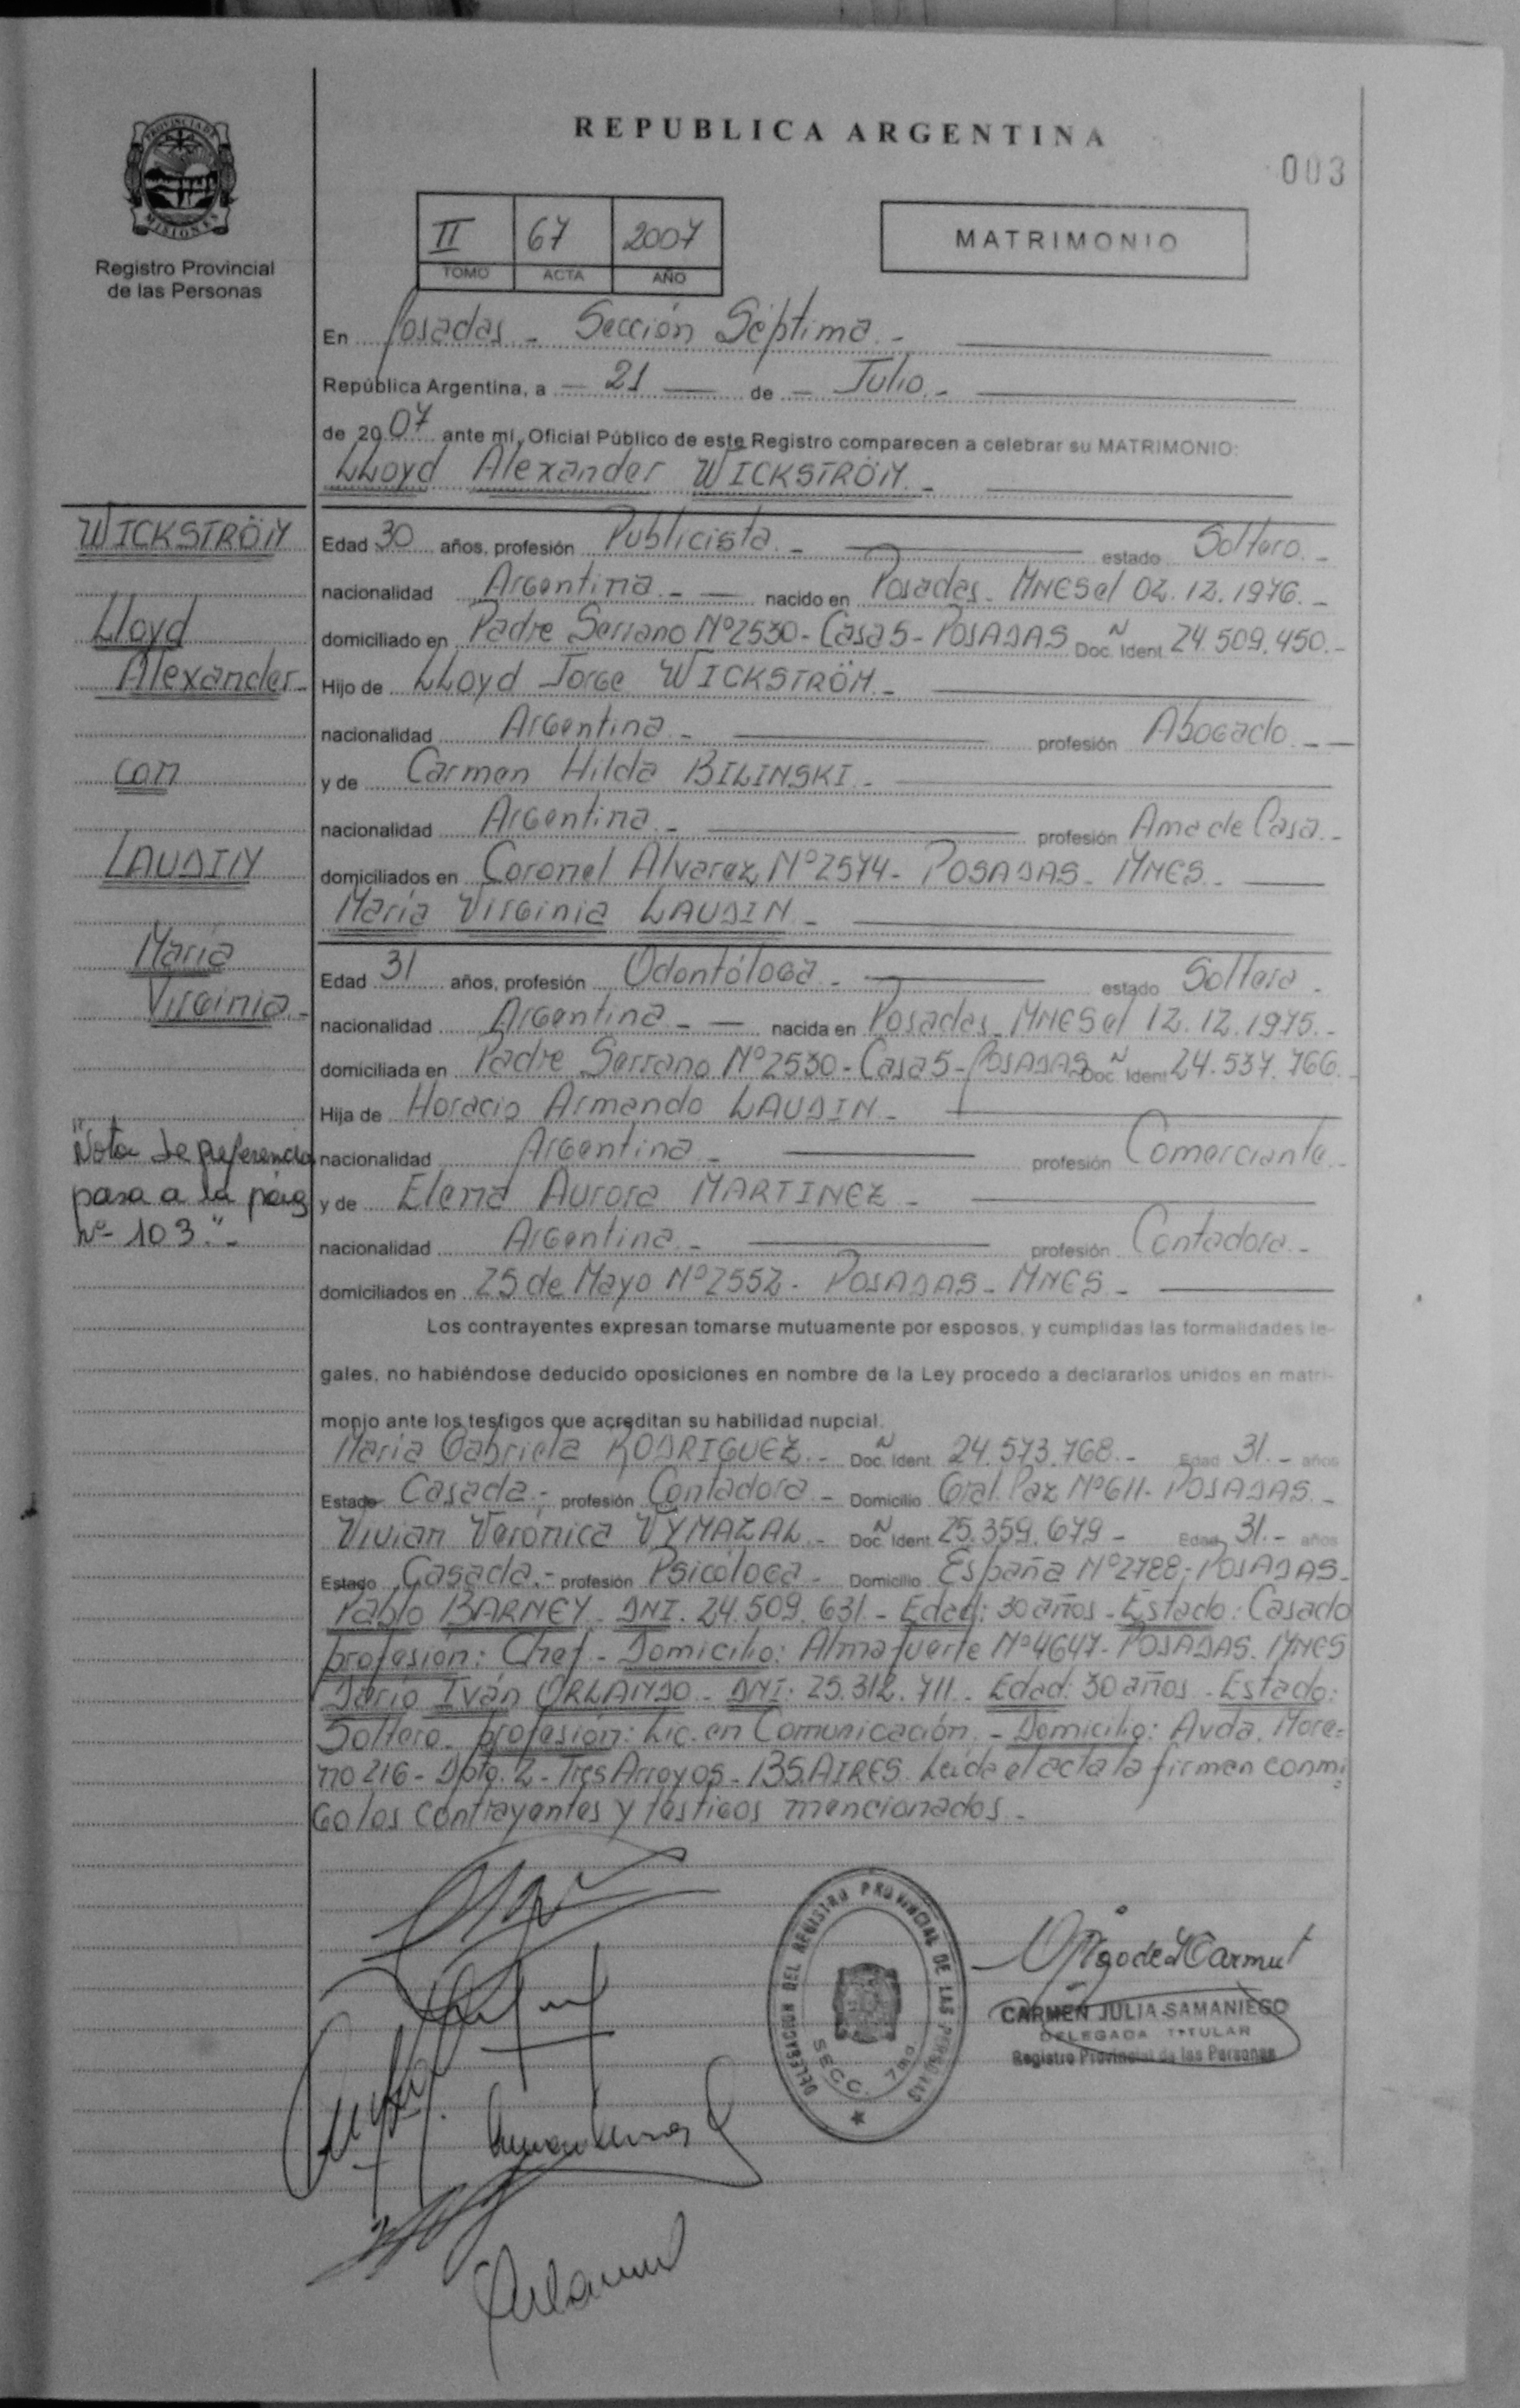 REPUBLICA ARGENTINA
003
PROVINCIA DE
MISIONES
Registro Provincial
de las Personas
II 67 2007
TOMO ACTA AÑO
MATRIMONIO
En Posadas - Sección Séptima.-
República Argentina, a - 21 - de - Julio.-
de 2007 ante mí, Oficial Público de este Registro comparecen a celebrar su MATRIMONIO:
LLoyd Alexander WICKSTRÖM.-
WICKSTRÖM
Lloyd
Alexander-
con
LAUDIN
María
Virginia.-
"Nota de referencia
pasa a la pág
Nº 103."-
Edad 30 años, profesión Publicista.- estado Soltero.-
nacionalidad Argentina.- - nacido en Posadas- MNES el 02.12.1976.-
domiciliado en Padre Serrano Nº2530- Casa 5- POSADAS Doc. N Ident. 24.509.450.-
Hijo de LLoyd Jorge WICKSTRÖM.-
nacionalidad Argentina.- profesión Abogado.--
y de Carmen Hilda BILINSKI.-
nacionalidad Argentina.- profesión Ama de Casa.-
domiciliados en Coronel Alvarez Nº2574- POSADAS- MNES.-
María Virginia LAUDIN.-
Edad 31 años, profesión Odontóloga.- estado Soltera.-
nacionalidad Argentina - - nacida en Posadas- MNES el 12.12.1975.-
domiciliada en Padre Serrano Nº2530- Casa 5- POSADAS Doc. N Ident. 24.537.766.-
Hija de Horacio Armando LAUDIN.-
nacionalidad Argentina.- profesión Comerciante.-
y de Elena Aurora MARTINEZ.-
nacionalidad Argentina.- profesión Contadora.-
domiciliados en 25 de Mayo Nº2552- POSADAS- MNES.-
Los contrayentes expresan tomarse mutuamente por esposos, y cumplidas las formalidades le-
gales, no habiéndose deducido oposiciones en nombre de la Ley procedo a declararlos unidos en matri-
monio ante los testigos que acreditan su habilidad nupcial.
María Gabriela RODRIGUEZ.- Doc. N Ident. 24.573.768.- Edad 31.- años
Estado Casada.- profesión Contadora.- Domicilio Gral. Paz Nº611- POSADAS.-
Vivian Verónica VYMAZAL.- Doc. N Ident. 25.359.679- Edad 31.- años
Estado Casada.- profesión Psicóloga- Domicilio España Nº2788; POSADAS-
Pablo BARNEY- DNI. 24.509.631.- Edad: 30 años - Estado: Casado
profesión: Chef.- Domicilio: Almafuerte Nº4647- POSADAS. MNES
Darío Iván ORLANDO- DNI: 25.312.711.- Edad: 30 años - Estado:
Soltero- profesión: Lic. en Comunicación.- Domicilio: Avda. More=
no 216- Dpto. 2- Tres Arroyos- BS.AIRES. Leída el acta la firman conmi=
go los contrayentes y testigos mencionados.-
DELEGACION DEL REGISTRO PROVINCIAL DE LAS PERSONAS
SECC. 7ma
CARMEN JULIA SAMANIEGO
DELEGADA TITULAR
Registro Provincial de las Personas